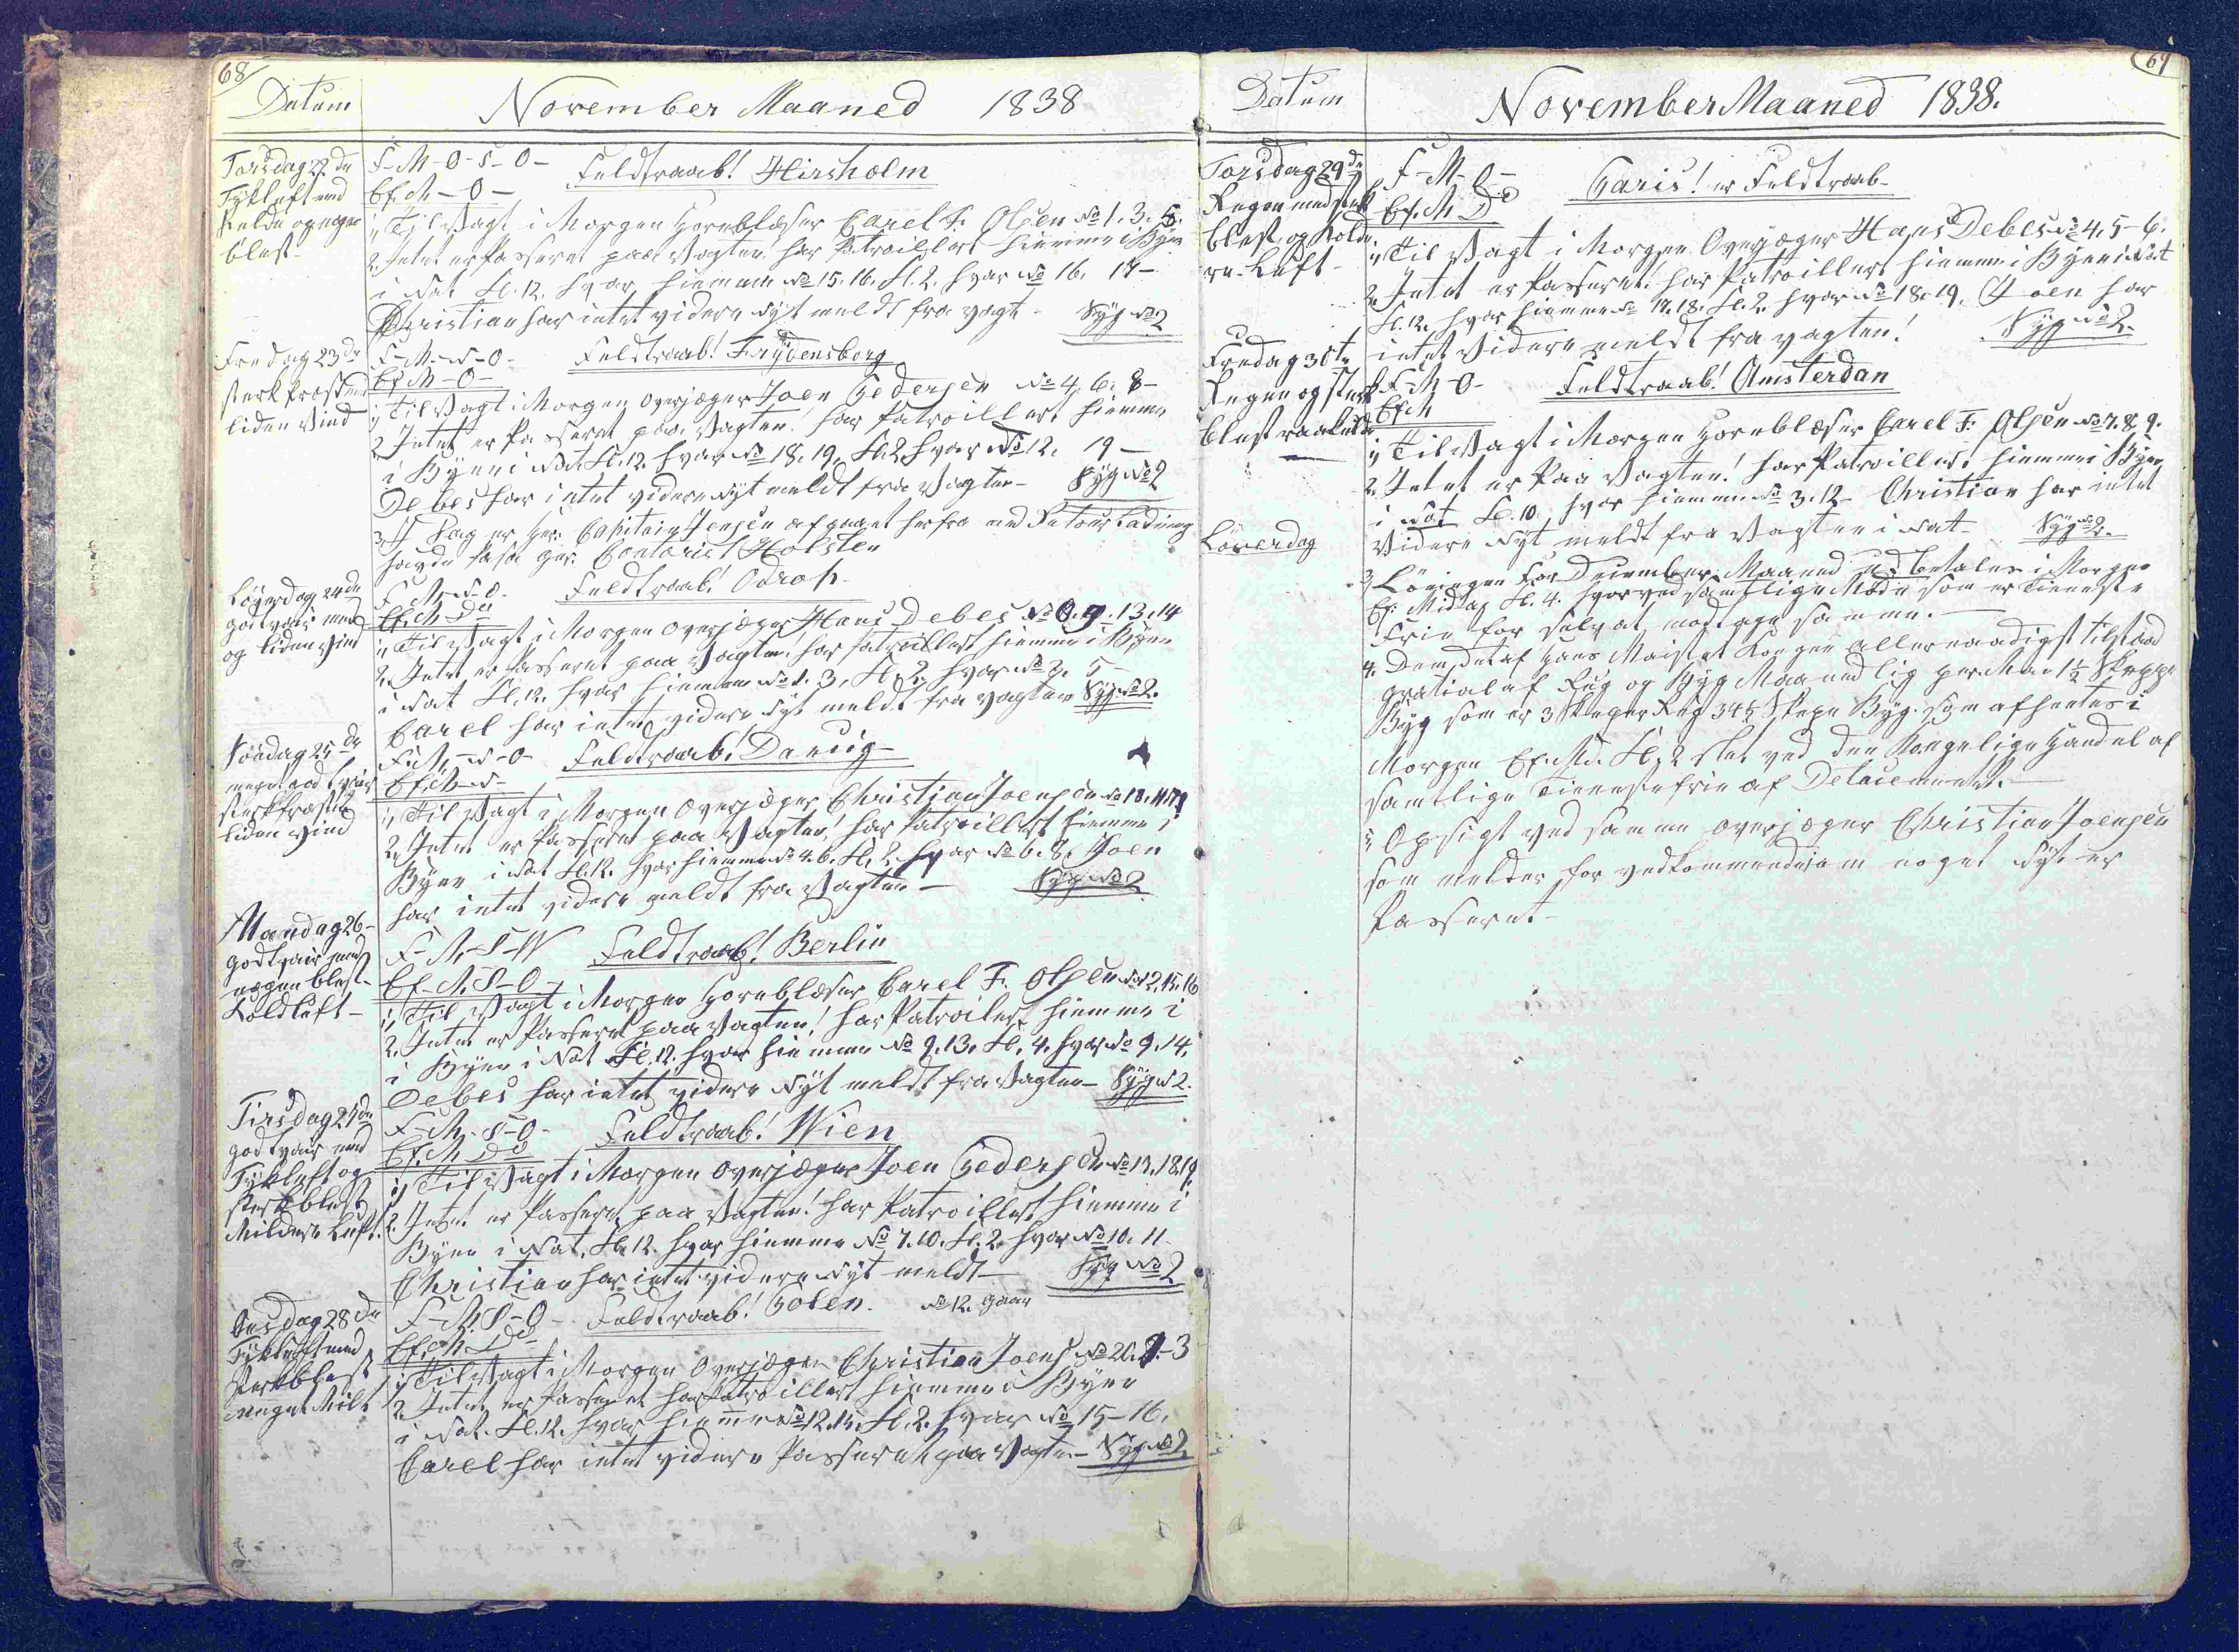 68
Datum
November Maaned 1838
Torsdag 22de
Tyk Luft med
Kulde og nogen
blest-
F-M-O-S-O- Feldtraab! Hirsholm
Ef. M-O-
1, Til Vagt i Morgen Hornblæser Carel F. Olsen No 1. 3. 5.
2, Intet er Passeret paa Vagten! har Patroillert hiemme i Byen
i Nat Kl. 12. hvor hiemme No 15. 16. Kl. 2. hvor No 16. 17-
Christian har intet videre Nyt meldt fra Vagt- Syg No 2
Fredag 23de
sterk frost med
liden Vind
F-M-N-O- Feldtraab! Frydensborg
Ef M-O-
1, Til Vagt i Morgen Overjæger Joen Pedersen No 4. 6. 8-
2, Intet er Passeret paa Vagten! har Patroillert hiemme
i Byen i Nat Kl. 12. hvor No 18. 19. Kl. 2 hvor No 12. 19-
Debes har intet videre Nyt meldt fra Vagten- Syg No 2
3, I Dag er Her. Capitain Jensen afgaaet herfra med Retour Ladning
havde Pasa ger. Contorist Holsten
Løverdag 24de
godt Vair med
og liden Vind
F-M-N-O- Feldtraab! Odrop-
Ef. M Do
1, Til Vagt i Morgen Overjæger Hans Debes No 9. 13. 14
2, Intet er Passeret paa Vagten! har Patroillert hiemme i Byen
i Nat Kl. 12. hvor hiemme No 1. 3. Kl. 2. hvor No 3. 5-
Carel har intet videre Nyt meldt fra Vagten Syg. No 2.
Søndag 25de
meget godt Vair
sterk frost
liden Vind
F. M.-N-O- Feldtraab! Danzig-
Ef. M-N-
1, Til Vagt i Morgen Overjæger Christian Joensen No 10. 11
2, Intet er Passeret paa Vagten! har Patroillert hiemme i
Byen i Nat Kl. 12. hvor hiemme No 4. 6. Kl. 2. hvor No 6. 8. Joen
har intet videre meldt fra Vagten- Syg No 2
Mandag 26-
godt Vair med
nogen blest-
Kold Luft-
F-M-S-W Feldtraab! Berlin
Ef-M. S-O-
1, Til Vagt i Morgen Hornblæser Carel F. Olsen No 12. 15. 16
2, Intet er Passeret paa Vagten! har Patroilert hiemme i
i Byen i Nat Kl. 12. hvor hiemme No 9. 13. Kl. 4. hvor No 9. 14.
Debes har intet videre Nyt meldt fra Vagten- Syg N 2.
Tirsdag 27de
godt Vair med
Tyk Luft og
sterk blest
Mildere Luft.
F-M-S-O- Feldtraab! Wien
Ef. M Do
1, Til Vagt i Morgen Overjæger Joen Pedersen No 17. 18. 19.
2, Intet er Passeret paa Vagten! har Patroillert hiemme i
Byen i Nat, Kl. 12. hvor hiemme No 7. 10. Kl. 2. hvor No 10. 11
Christian har intet videre Nyt meldt- Syg No 2
Onsdag 28de
Tyk Luft med
sterk blest
meget Milt
F-M. S-O- Feldtraab! Polen. No 12. gaar
Ef. M. Do
1, Til Vagt i Morgen Overjæger Christian Joens No 20. 1.-3
2, Intet er Passeret har Patroillert hiemme i Byen
i Nat. Kl. 12. hvor hiemme No 12. 15. Kl. 2. hvor No 15-16.
Carel har intet videre Passeret paa Vagten- Syg No 2
69
Datum
November Maaned 1838.
Torsdag 29de
Regen med sterk
blest, og Kolde-
re Luft-
F-M-O- Paris! er Feldtraab-
Ef. M Do
1, Til Vagt i Morgen Overjæger Hans Debes No 4. 5-6.
2, Intet er Passeret! har Patroillert hiemme i Byen i Nat
Kl. 12. hvor hiemme No 17. 18. Kl. 2. hvor No 18. 19. Joen har
intet Videre meldt fra Vagten! Syg No 2.
Fredag 30te
Regen og sterk
blest raa Kulde
F-M-O- Feldtraab! Amsterdan
Ef. M
1, Til Vagt i Morgen Hornblæser Carel F. Olsen No 7. 8. 9.
2, Intet er Paa Vagten! har Patroillert hiemme i Byen
i Nat Kl. 10. hvor hiemme No 3. 12- Christian har intet
Videre Nyt meldt fra Vagten i Nat- Syg No 2.
Løverdag
3, Löningen For December Maaned udbetales i Morgen
Ef. Middag Kl. 4. hvorved samtlige Møde som er Tieneste
Frie for selv at modtage samme.-
4. Dem, det af Hans Maiestet Kongen allernaadigst tilstaad
gratial af Rug og Byg Maanedlig per. Man 1½ Skeppe
Byg som er 3 Skeper Rug 34½ Skepe Byg. som afhentes i
Morgen Ef. Md. Kl. 2 slet ved den Kongelige Handel af
samtlige Tienestefrie af Detacementet.-
" Opsigt ved samme Overjæger Christian Joensen
som melder for vedkommende som noget Nyt er
Passeret-